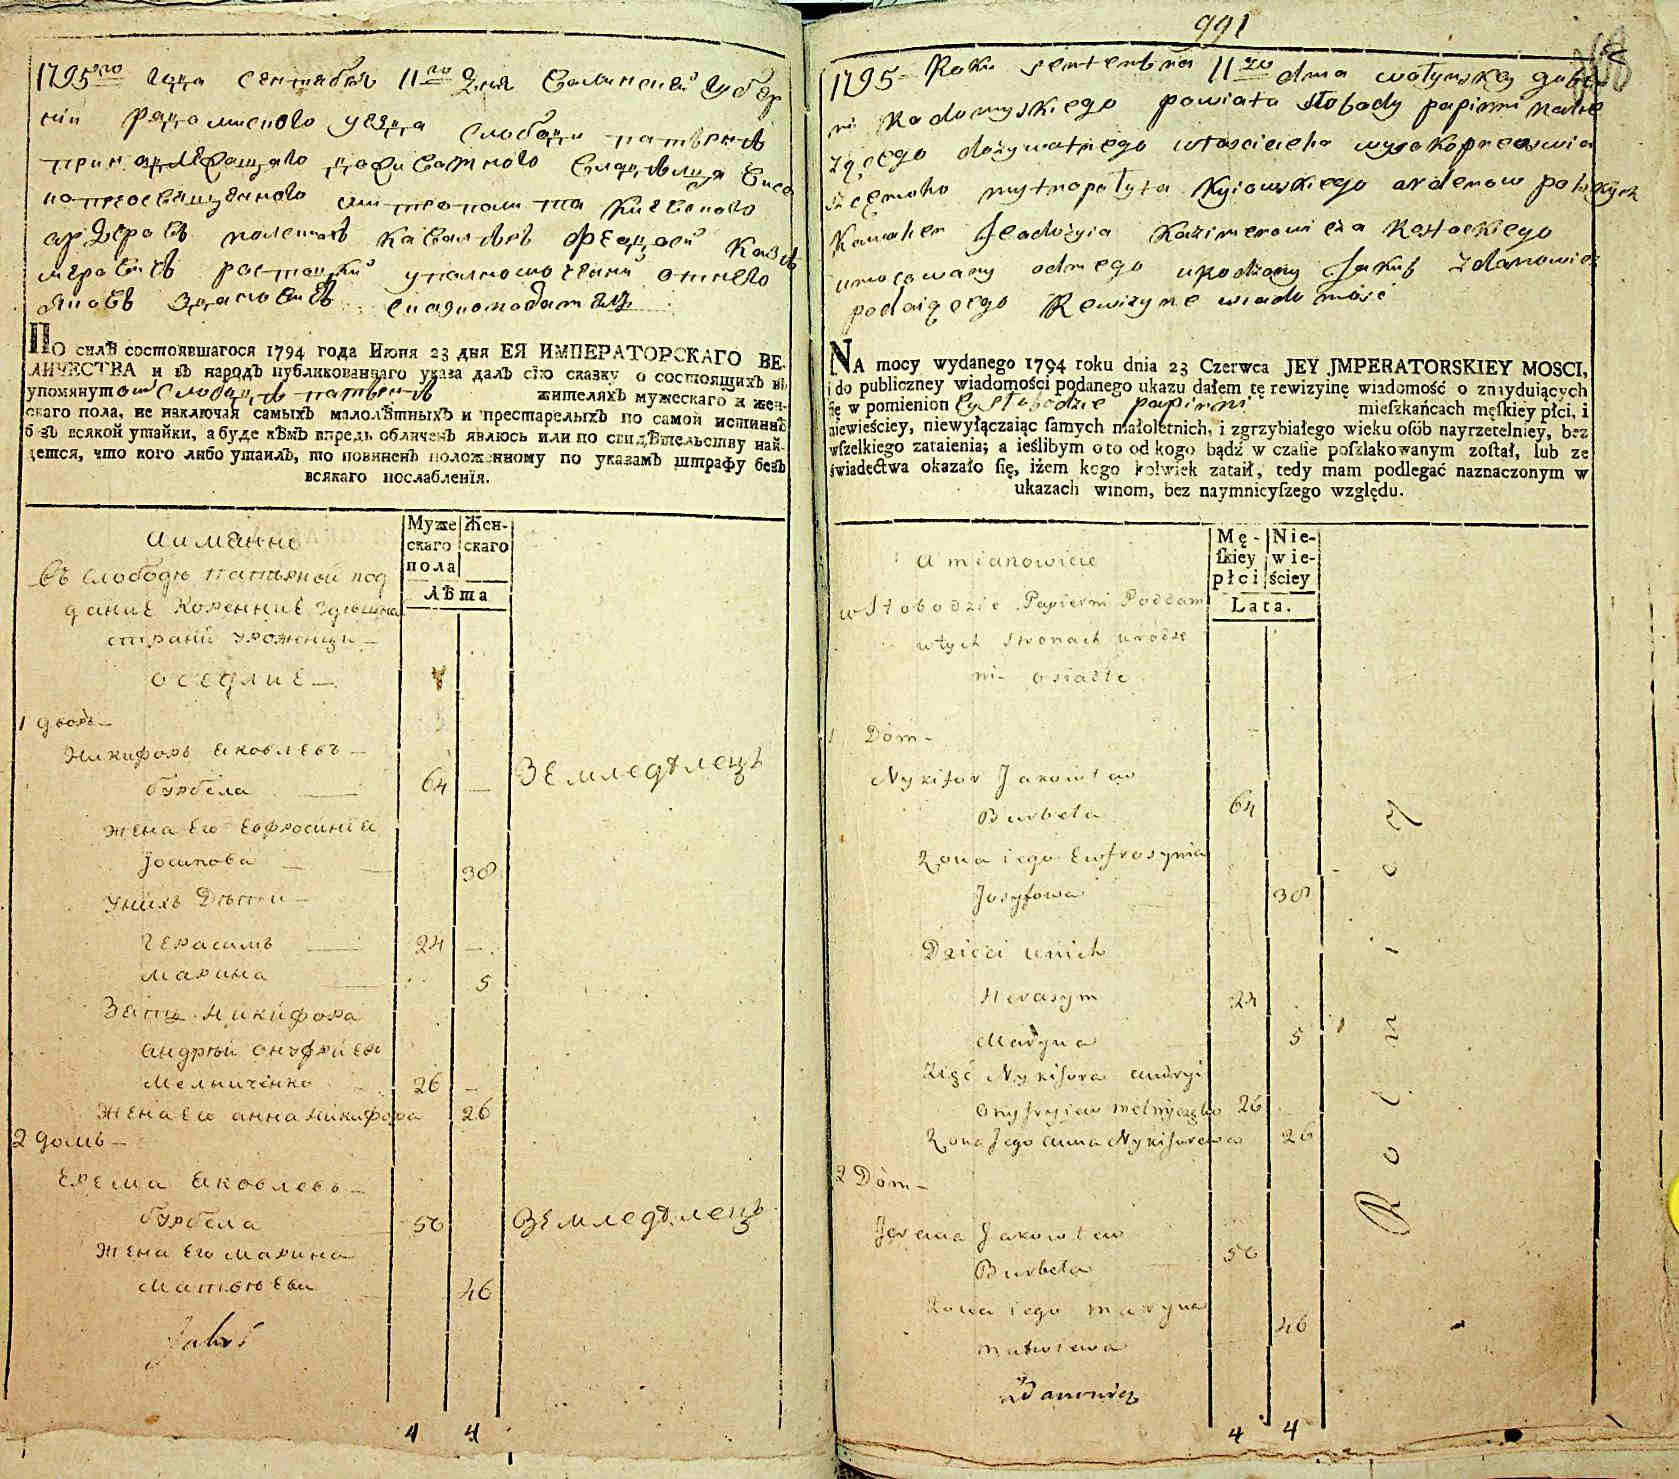 1795го года сентября 11го дня Волинской губер
нии Радомисского уезда слободи папѣрнѣ
принадлежащаго доживатного владѣлца висо
копреосвященного митрополита Киевского
ордеровъ полскихъ кавалѣра Феодосий Кази
мѣровичъ Ростоцкий уполномоченний отнего
Яковъ Здановичъ
ПО силѣ состоявшагося 1794 года Июня 23 дня ЕЯ ИМПЕРАТОРСКАГО ВЕ-
ЛИЧЕСТВА и въ народъ публикованнаго указа далъ сїю сказку о состоящихъ въ
упомянутой Слободѣ папѣрнѣ жителяхъ мужескаго и жен-
скаго пола, не изключая самыхъ малолѣтныхъ и престарелыхъ по самой истиннѣ
безъ всякой утайки, а буде кѣмъ впредь обличенъ явлюсь или по свидѣтельству най-
дется, что кого либо утаилъ, то повиненъ положенному по указамъ штрафу безъ
всякаго послабленїя.
Муже
скаго
пола
Жен-
скаго
Лѣта
аимянно
въ слободѣ папѣрной под
дание коренние здешни
сторани уроженци
оседлие
1 дворъ
Никифоръ Яковлевъ
бурбела 64 Земледѣлецъ
жена его Евфросиния
Йосипова 38
Унихъ Дѣти
Герасимъ 24
Марина 5
Зять Никифора
андрѣй онуфриевъ
Мелниченко 26
жена его анна Никифора 26
2 домъ
Ерема Яковлевъ
бурбела 56 Земледѣлецъ
жена его марина
Матвѣева 46
Jakób
4 4
991
1795 Roku septembra 11go dnia wołynskey guber
ni Radomyskiego powiatu słobody papirni nale
zącego dożywatnego własciciela wysokopreoswia
szczęnoho mytropołyta Kyiowskiego orderow polskych
Kawaler Feodozyia Kazimerowicza Rostockiego
umocowany odniego urodzony Jakub Zdanowicz
podaiącego Rewizyine wiadomość
NA mocy wydanego 1794 roku dnia 23 Czerwca JEY JMPERATORSKIEY MOSCI,
i do publiczney wiadomości podanego ukazu dałem tę rewizyinę wiadomość o znayduiących
się w pomienioney słobodzie papirni mieszkańcach męskiey płci, i
niewieściey, niewyłączaiąc samych małoletnich, i zgrzybiałego wieku osób nayrzetelniey, bez
wszelkiego zataienia; a ieślibym oto od kogo bądź w czasie poszlakowanym został, lub ze
świadectwa okazało się, iżem kogo kolwiek zataił, tedy mam podlegać naznaczonym w
ukazach winom, bez naymnieyszego względu.
Mę-
skiey
płci
Nie-
wie-
ściey
Lata.
a mianowicie
w Słobodzie Papierni Poddani
wtych Stronach urodze
ni osiadłe
1 Dom
Nykifor Jakowlew
Burbeła 64
Zona iego Ewfrosynia
Josypowa 38
Dzieci unich
Herasym 24
Maryna 5
Zięć Nykifora andryi
Onyfryiew melnyczenko 26
Zona Jego anna Nykiforowa 26
2 Dom
Jerema Jakowlew
Burbeła 56
Zona iego Maryna
Matwiewa 46
Rolnicy
Zdanowicz
4 4